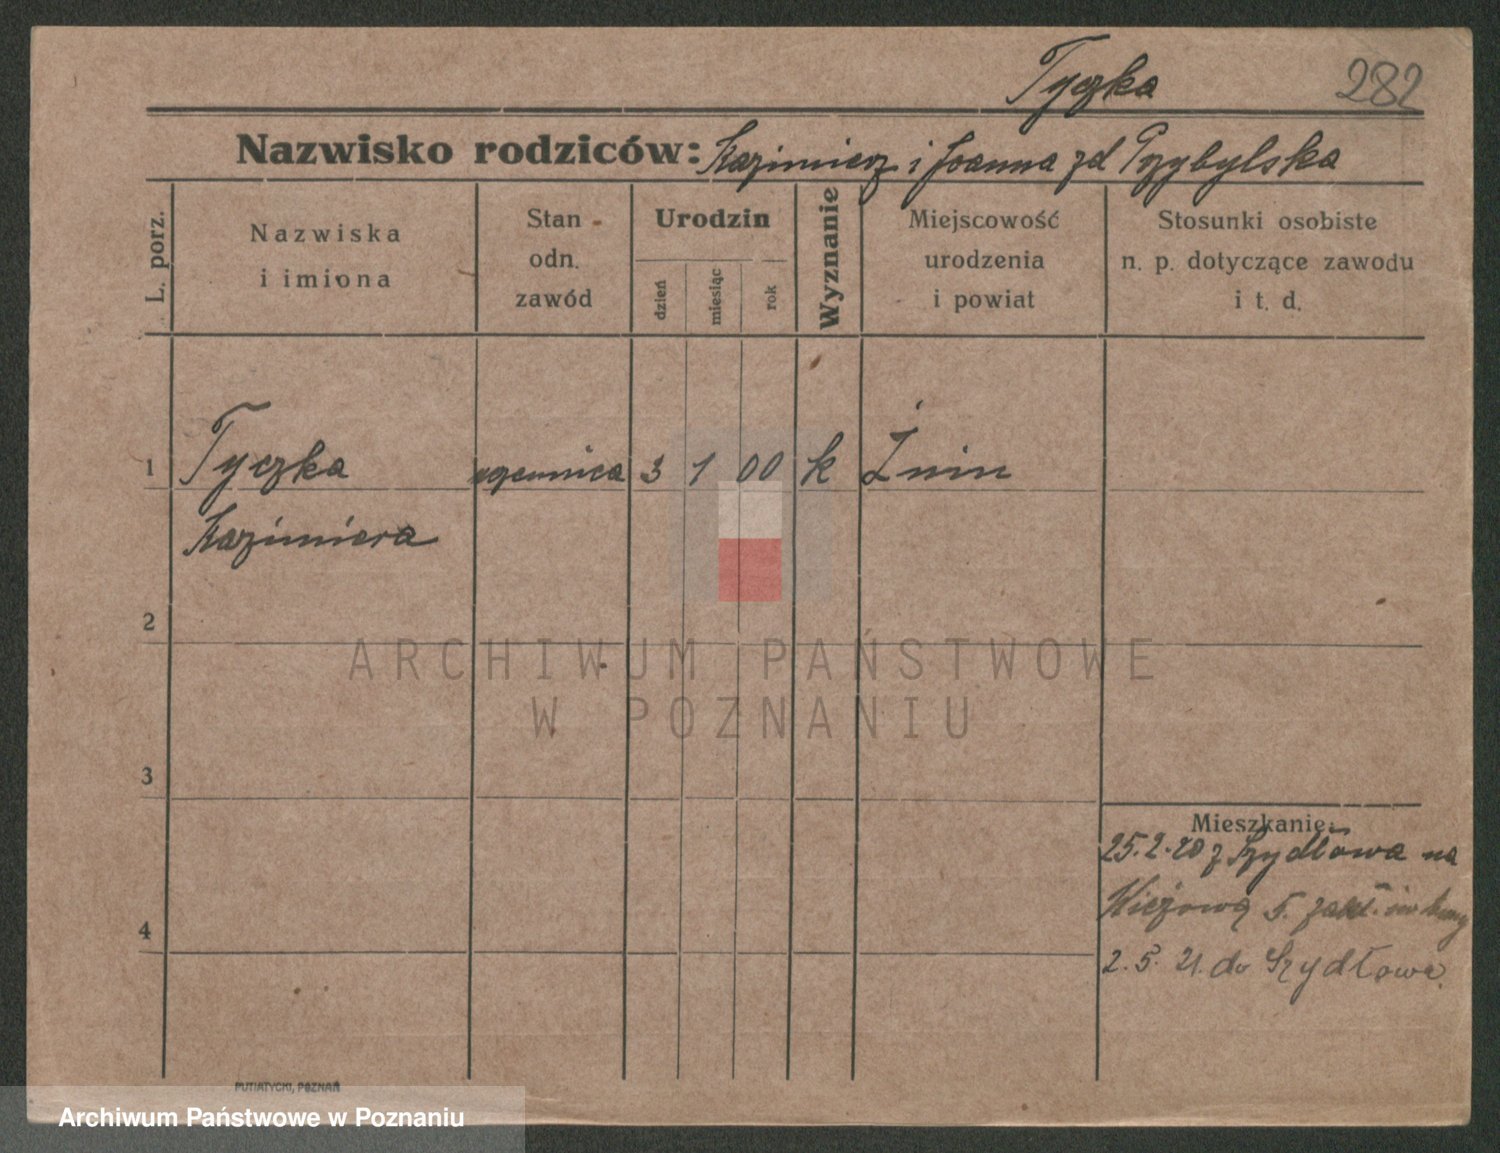 Tyczka 282
Nazwisko rodziców: Kazimierz i Joanna zd Przybylska
L. porz.
Nazwiska
i imiona
Stan
odn.
zawód
Urodzin
dzień
miesiąc
rok
Wyznanie
Miejscowość
urodzenia
i powiat
Stosunki osobiste
n. p. dotyczące zawodu
i t. d.
1 Tyczka uczennica 3 1 00 k Żnin
Kazimiera
2
3
4
Mieszkanie:
25.2.20 z Szydłowa na
Wieżową 5.
2.5.21. do Szydłowa.
PUTIATYCKI, POZNAŃ
ARCHIWUM PAŃSTWOWE
W POZNANIU
Archiwum Państwowe w Poznaniu